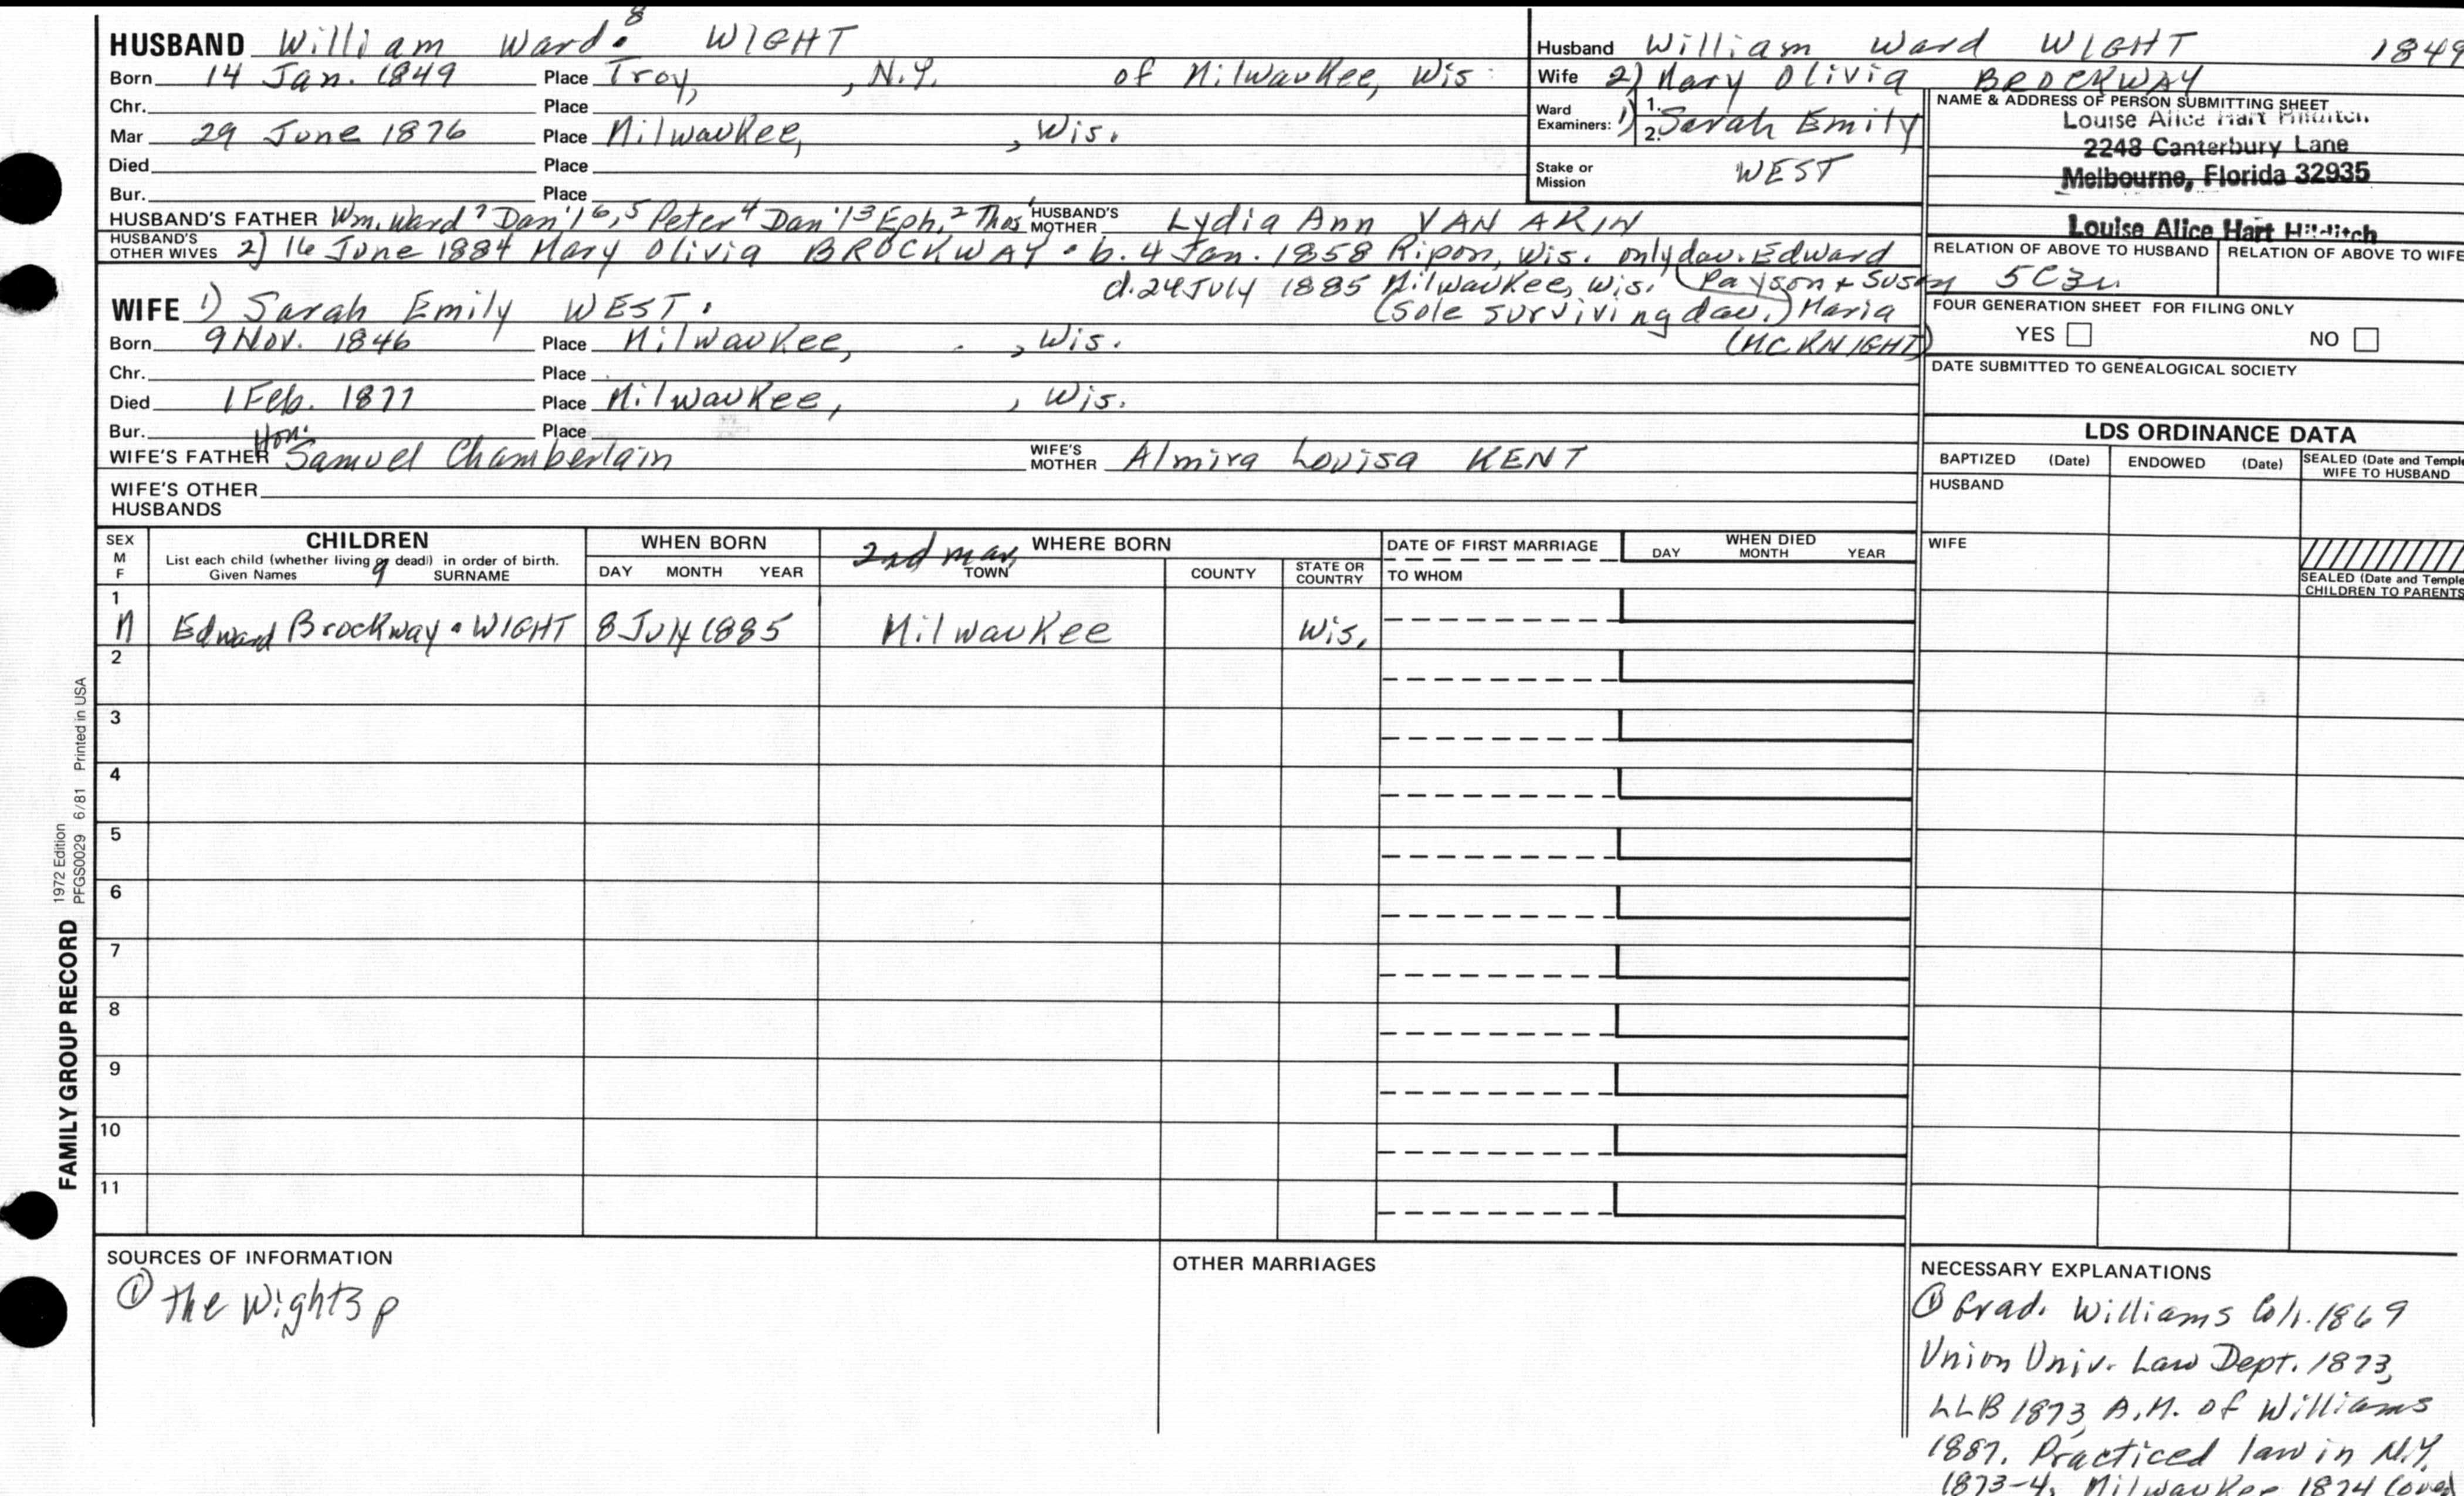 HUSBAND William Ward 8 WIGHT
Born 14 Jan. 1849 Place Troy, , N.Y. of Milwaukee, Wis
Chr. Place
Mar 29 June 1876 Place Milwaukee, , Wis.
Died Place
Bur. Place
HUSBAND'S FATHER Wm. Ward 7 Dan'l 6, 5 Peter 4 Dan'l 3 Eph. 2 Thos 1 HUSBAND'S MOTHER Lydia Ann VAN AKIN
HUSBAND'S OTHER WIVES 2) 16 June 1884 Mary Olivia BROCKWAY b. 4 Jan. 1858 Ripon, Wis. only dau. Edward
d. 24 July 1885 Milwaukee, Wis. Payson + Susan
(Sole surviving dau.) Maria
(MCKNIGHT)
WIFE 1) Sarah Emily WEST.
Born 9 Nov. 1846 Place Milwaukee, , Wis.
Chr. Place
Died 1 Feb. 1877 Place Milwaukee, , Wis.
Bur. Place
WIFE'S FATHER Hon. Samuel Chamberlain WIFE'S MOTHER Almira Louisa KENT
WIFE'S OTHER
HUSBANDS
Husband William Ward WIGHT 1849
Wife 2) Mary Olivia BROCKWAY
Ward Examiners: 1. 2. 1) Sarah Emily
Stake or Mission WEST
NAME & ADDRESS OF PERSON SUBMITTING SHEET
Louise Alice Hart Hilditch
2248 Canterbury Lane
Melbourne, Florida 32935
Louise Alice Hart Hilditch
RELATION OF ABOVE TO HUSBAND RELATION OF ABOVE TO WIFE
5C3r
FOUR GENERATION SHEET FOR FILING ONLY
YES NO
DATE SUBMITTED TO GENEALOGICAL SOCIETY
LDS ORDINANCE DATA
BAPTIZED (Date) ENDOWED (Date) SEALED (Date and Temple) WIFE TO HUSBAND
HUSBAND
WIFE
SEALED (Date and Temple) CHILDREN TO PARENTS
SEX M F
CHILDREN
List each child (whether living or dead) in order of birth.
Given Names 9 SURNAME
WHEN BORN
DAY MONTH YEAR
2nd mar. WHERE BORN
TOWN COUNTY STATE OR COUNTRY
DATE OF FIRST MARRIAGE
TO WHOM
WHEN DIED
DAY MONTH YEAR
1
M Edward Brockway WIGHT 8 July 1885 Milwaukee Wis.
2
3
4
5
6
7
8
9
10
11
FAMILY GROUP RECORD
1972 Edition
PFGS0029 6/81 Printed in USA
SOURCES OF INFORMATION
① The Wights p
OTHER MARRIAGES
NECESSARY EXPLANATIONS
① Grad. Williams Coll. 1869
Union Univ. Law Dept. 1873,
LLB 1873, A.M. of Williams
1887. Practiced law in N.Y.
1873-4, Milwaukee 1874 (over)